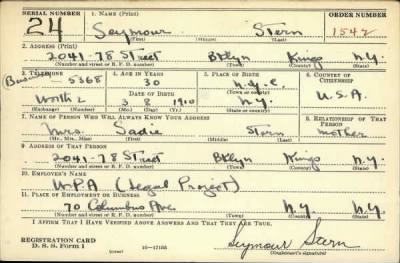 SERIAL NUMBER 1. NAME (Print) ORDER NUMBER
24 Seymour Stern 1542
(First) (Middle) (Last)
2. ADDRESS (Print)
2041-78 Street Bklyn Kings N.Y.
(Number and street or R. F. D. number) (Town) (County) (State)
3. TELEPHONE 4. AGE IN YEARS 5. PLACE OF BIRTH 6. COUNTRY OF CITIZENSHIP
5368 30 N.Y.C.
(Town or county)
Worth 2 DATE OF BIRTH U.S.A.
3 8 1910 N.Y.
(Exchange) (Number) (Mo.) (Day) (Yr.) (State or country)
7. NAME OF PERSON WHO WILL ALWAYS KNOW YOUR ADDRESS 8. RELATIONSHIP OF THAT PERSON
Mrs. Sadie Stern mother
(Mr., Mrs., Miss) (First) (Middle) (Last)
9. ADDRESS OF THAT PERSON
2041-78 Street Bklyn Kings N.Y.
(Number and street or R. F. D. number) (Town) (County) (State)
10. EMPLOYER'S NAME
W.P.A (Legal Project)
11. PLACE OF EMPLOYMENT OR BUSINESS
70 Columbus Ave. N.Y N.Y
(Number and street or R. F. D. number) (Town) (County) (State)
I AFFIRM THAT I HAVE VERIFIED ABOVE ANSWERS AND THAT THEY ARE TRUE.
REGISTRATION CARD
D. S. S. Form 1 (over) 16—17105 Seymour Stern
(Registrant's signature)